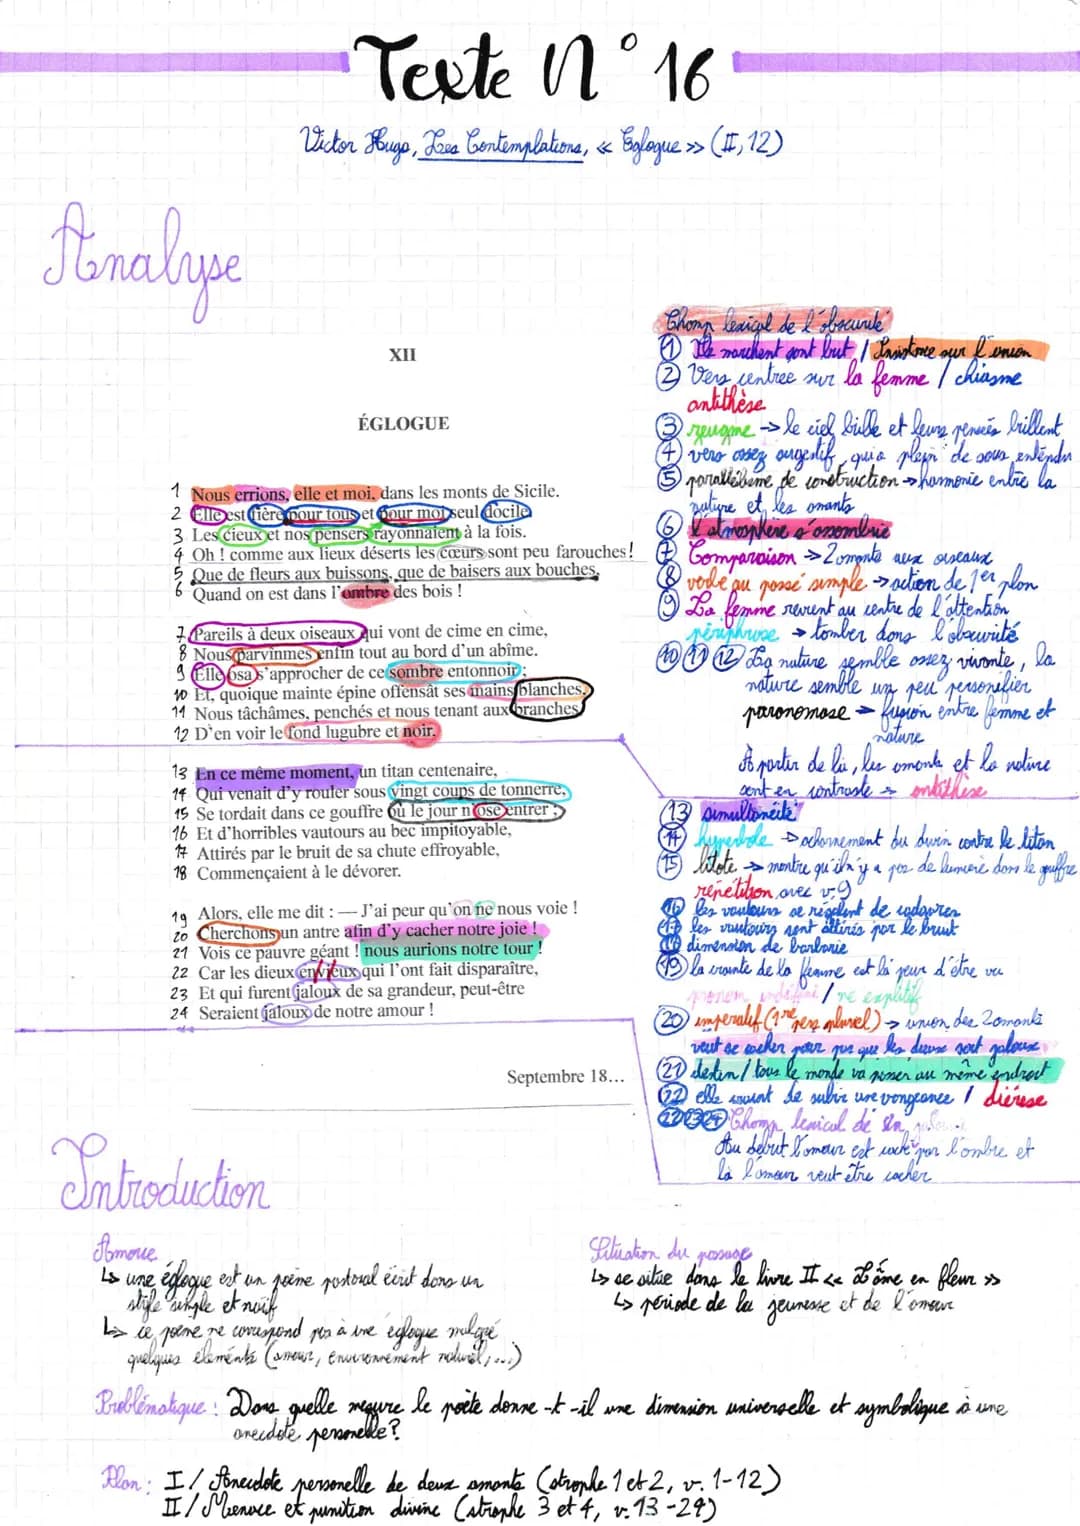 Texte n° 16
Victor Hugo, Les Contemplations, « Eglogue » (II, 12)
Analyse
XII
ÉGLOGUE
1 Nous errions, elle et moi, dans les monts de Sicile.
2 Elle est fière pour tous et pour moi seul docile.
3 Les cieux et nos pensers rayonnaient à la fois.
4 Oh ! comme aux lieux déserts les cœurs sont peu farouches !
5 Que de fleurs aux buissons, que de baisers aux bouches,
6 Quand on est dans l'ombre des bois !
7 Pareils à deux oiseaux qui vont de cime en cime,
8 Nous parvînmes enfin tout au bord d'un abîme.
9 Elle osa s'approcher de ce sombre entonnoir ;
10 Et, quoique mainte épine offensât ses mains blanches,
11 Nous tâchâmes, penchés et nous tenant aux branches,
12 D'en voir le fond lugubre et noir.
13 En ce même moment, un titan centenaire,
14 Qui venait d'y rouler sous vingt coups de tonnerre,
15 Se tordait dans ce gouffre où le jour n'ose entrer ;
16 Et d'horribles vautours au bec impitoyable,
17 Attirés par le bruit de sa chute effroyable,
18 Commençaient à le dévorer.
19 Alors, elle me dit : — J'ai peur qu'on ne nous voie !
20 Cherchons un antre afin d'y cacher notre joie !
21 Vois ce pauvre géant ! nous aurions notre tour !
22 Car les dieux envieux qui l'ont fait disparaître,
23 Et qui furent jaloux de sa grandeur, peut-être
24 Seraient jaloux de notre amour !
Septembre 18...
Champ lexical de l'obscurité
① Ils marchent sont but / Insistance sur l'union
② Vers centree sur la femme / chiasme
antithèse
③ zeugme → le ciel brille et leurs pensées brillent
④ vers assez suggestif, qui a plein de sous entendu
⑤ parallélisme de construction → harmonie entre la
nature et les amants
⑥ l'atmosphère s'assombrie
⑦ Comparaison → 2 amants aux oiseaux
⑧ verbe au passé simple → action de 1er plan
⑨ La femme revient au centre de l'attention
périphrase → tomber dans l'obscurité
⑩ ⑪ ⑫ La nature semble assez vivante, la
nature semble un peu personifier
paronomase → fusion entre femme et
nature
À partir de là, les amants et la nature
sont en contraste → antithèse
⑬ simultanéité
⑭ hyperbole → acharnement du divin contre le titan
⑮ litote → montre qu'il n'y a pas de lumière dans le gouffre
répétition avec v.9
⑯ les vautours se régalent de cadavres
⑰ les vautours sont attirés par le bruit
⑱ dimension de barbarie
⑲ la crainte de la femme est la peur d'être vu
pronom indéfini / ne explétif
⑳ impératif (1re pers pluriel) → union des 2 amants
veut se cacher pour pas que les dieux soit jaloux
㉑ destin / tous le monde va passer au même endroit
㉒ elle craint de subir une vengeance / diérèse
㉒㉓㉔ Champ lexical de la jalousie
Au début l'amour est caché par l'ombre et
là l'amour veut être cacher
Introduction
Amorce
↳ une églogue est un poème pastoral écrit dans un
style simple et naïf
↳ ce poème ne correspond pas à une églogue malgré
quelques éléments (amour, environnement naturel, ...)
Situation du passage
↳ se situe dans le livre II « L'âme en fleur »
↳ période de la jeunesse et de l'amour
Problématique : Dans quelle mesure le poète donne-t-il une dimension universelle et symbolique à une
anecdote personelle ?
Plan : I/ Anecdote personelle de deux amants (strophe 1 et 2, v. 1-12)
II/ Menace et punition divine (strophe 3 et 4, v. 13-24)